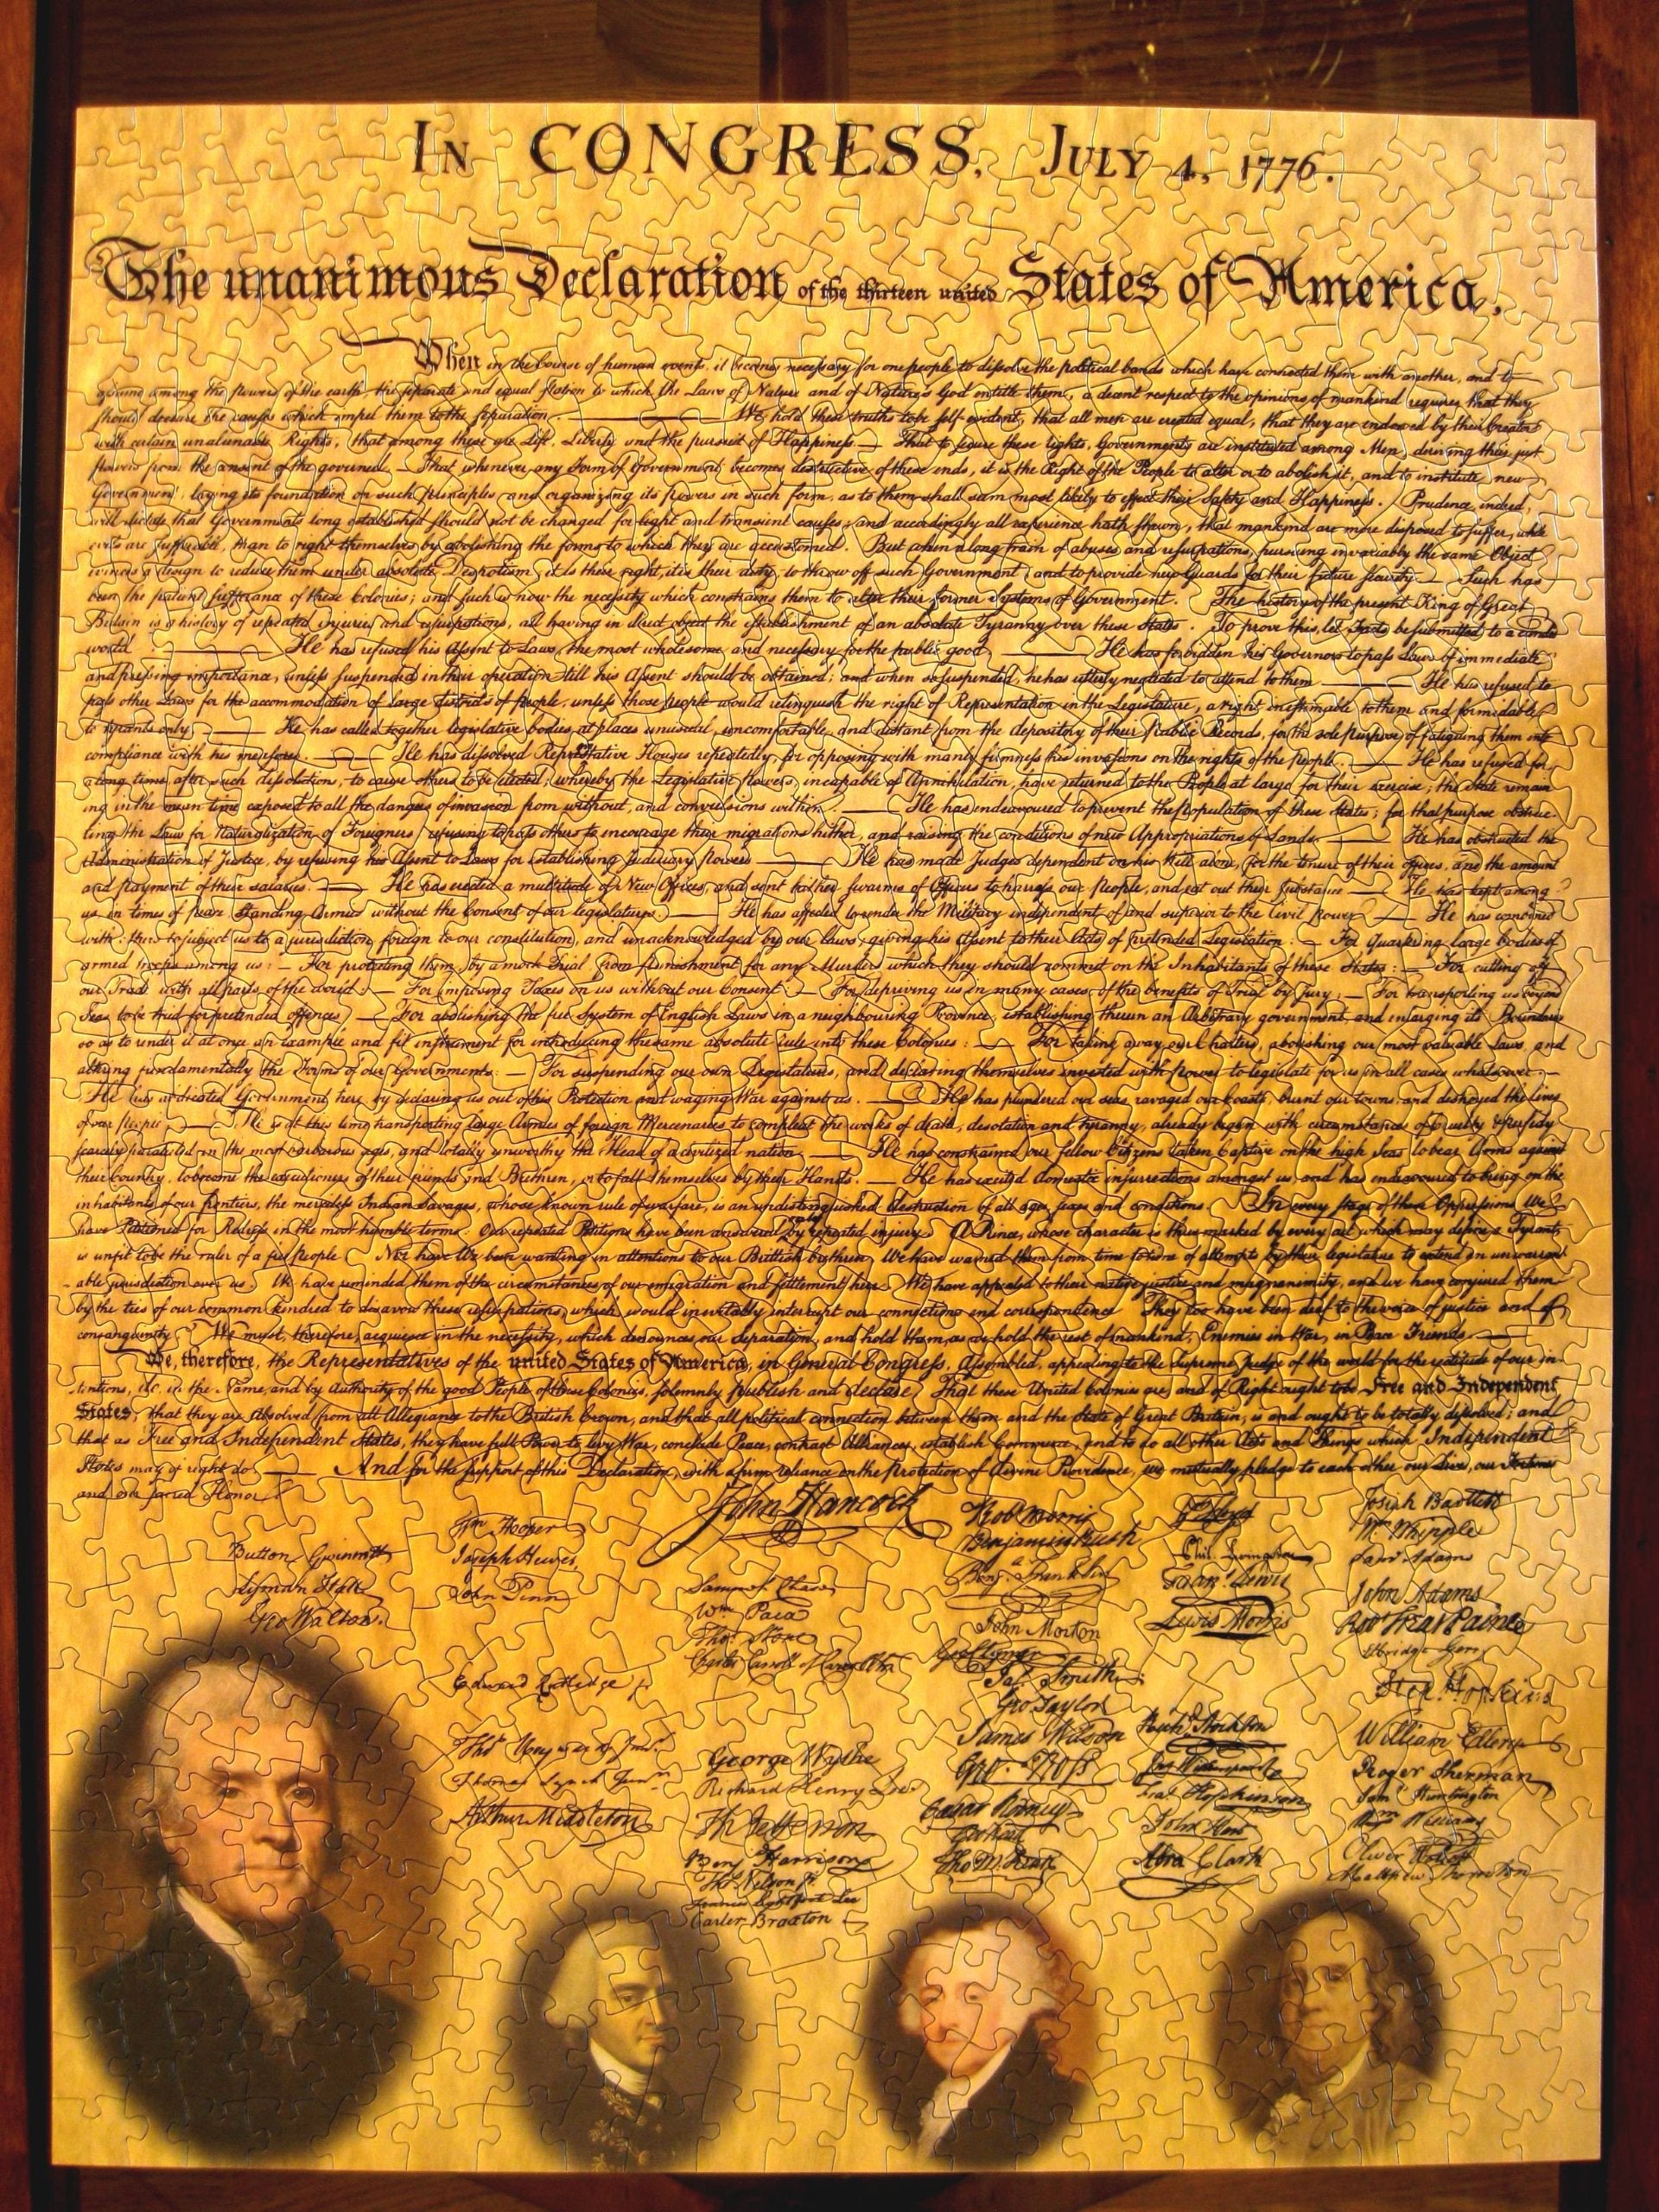 In CONGRESS, July 4, 1776.
The unanimous Declaration of the thirteen united States of America,
When in the Course of human events, it becomes necessary for one people to dissolve the political bands which have connected them with another, and to
assume among the powers of the earth, the separate and equal station to which the Laws of Nature and of Nature's God entitle them, a decent respect to the opinions of mankind requires that they
should declare the causes which impel them to the separation. — We hold these truths to be self-evident, that all men are created equal, that they are endowed by their Creator
with certain unalienable Rights, that among these are Life, Liberty and the pursuit of Happiness — That to secure these rights, Governments are instituted among Men, deriving their just
powers from the consent of the governed, — That whenever any Form of Government becomes destructive of these ends, it is the Right of the People to alter or to abolish it, and to institute new
Government, laying its foundation on such principles and organizing its powers in such form, as to them shall seem most likely to effect their Safety and Happiness. Prudence, indeed,
will dictate that Governments long established should not be changed for light and transient causes; and accordingly all experience hath shewn, that mankind are more disposed to suffer, while
evils are sufferable, than to right themselves by abolishing the forms to which they are accustomed. But when a long train of abuses and usurpations, pursuing invariably the same Object
evinces a design to reduce them under absolute Despotism, it is their right, it is their duty, to throw off such Government, and to provide new Guards for their future security. — Such has
been the patient sufferance of these Colonies; and such is now the necessity which constrains them to alter their former Systems of Government. The history of the present King of Great
Britain is a history of repeated injuries and usurpations, all having in direct object the establishment of an absolute Tyranny over these States. To prove this, let Facts be submitted to a candid
world. — He has refused his Assent to Laws, the most wholesome and necessary for the public good. — He has forbidden his Governors to pass Laws of immediate
and pressing importance, unless suspended in their operation till his Assent should be obtained; and when so suspended, he has utterly neglected to attend to them. — He has refused to
pass other Laws for the accommodation of large districts of people, unless those people would relinquish the right of Representation in the Legislature, a right inestimable to them and formidable
to tyrants only. — He has called together legislative bodies at places unusual, uncomfortable, and distant from the depository of their Public Records, for the sole purpose of fatiguing them into
compliance with his measures. — He has dissolved Representative Houses repeatedly, for opposing with manly firmness his invasions on the rights of the people. — He has refused for
a long time, after such dissolutions, to cause others to be elected; whereby the Legislative powers, incapable of Annihilation, have returned to the People at large for their exercise; the State remain
ing in the mean time exposed to all the dangers of invasion from without, and convulsions within. — He has endeavoured to prevent the population of these States; for that purpose obstruc-
ting the Laws for Naturalization of Foreigners; refusing to pass others to encourage their migrations hither, and raising the conditions of new Appropriations of Lands. — He has obstructed the
Administration of Justice, by refusing his Assent to Laws for establishing Judiciary powers. — He has made Judges dependent on his Will alone, for the tenure of their offices, and the amount
and payment of their salaries. — He has erected a multitude of New Offices, and sent hither swarms of Officers to harrass our people, and eat out their substance. — He has kept among
us, in times of peace, Standing Armies without the Consent of our legislatures. — He has affected to render the Military independent of and superior to the Civil power. — He has combined
with others to subject us to a jurisdiction foreign to our constitution, and unacknowledged by our laws; giving his Assent to their Acts of pretended Legislation: — For Quartering large bodies of
armed troops among us: — For protecting them, by a mock Trial, from punishment for any Murders which they should commit on the Inhabitants of these States: — For cutting off
our Trade with all parts of the world: — For imposing Taxes on us without our Consent: — For depriving us in many cases, of the benefits of Trial by Jury: — For transporting us beyond
Seas to be tried for pretended offences: — For abolishing the free System of English Laws in a neighbouring Province, establishing therein an Arbitrary government, and enlarging its Boundaries
so as to render it at once an example and fit instrument for introducing the same absolute rule into these Colonies: — For taking away our Charters, abolishing our most valuable Laws, and
altering fundamentally the Forms of our Governments: — For suspending our own Legislatures, and declaring themselves invested with power to legislate for us in all cases whatsoever. —
He has abdicated Government here, by declaring us out of his Protection and waging War against us. — He has plundered our seas, ravaged our Coasts, burnt our towns, and destroyed the lives
of our people. — He is at this time transporting large Armies of foreign Mercenaries to compleat the works of death, desolation and tyranny, already begun with circumstances of Cruelty & perfidy
scarcely paralleled in the most barbarous ages, and totally unworthy the Head of a civilized nation. — He has constrained our fellow Citizens taken Captive on the high Seas to bear Arms against
their Country, to become the executioners of their friends and Brethren, or to fall themselves by their Hands. — He has excited domestic insurrections amongst us, and has endeavoured to bring on the
inhabitants of our frontiers, the merciless Indian Savages, whose known rule of warfare, is an undistinguished destruction of all ages, sexes and conditions. In every stage of these Oppressions We
have Petitioned for Redress in the most humble terms: Our repeated Petitions have been answered only by repeated injury. A Prince, whose character is thus marked by every act which may define a Tyrant,
is unfit to be the ruler of a free people. Nor have We been wanting in attentions to our Brittish brethren. We have warned them from time to time of attempts by their legislature to extend an unwarrant
able jurisdiction over us. We have reminded them of the circumstances of our emigration and settlement here. We have appealed to their native justice and magnanimity, and we have conjured them
by the ties of our common kindred to disavow these usurpations, which, would inevitably interrupt our connections and correspondence. They too have been deaf to the voice of justice and of
consanguinity. We must, therefore, acquiesce in the necessity, which denounces our Separation, and hold them, as we hold the rest of mankind, Enemies in War, in Peace Friends. —
We, therefore, the Representatives of the united States of America, in General Congress, Assembled, appealing to the Supreme Judge of the world for the rectitude of our in-
tentions, do, in the Name, and by Authority of the good People of these Colonies, solemnly publish and declare, That these United Colonies are, and of Right ought to be Free and Independent
States; that they are Absolved from all Allegiance to the British Crown, and that all political connection between them and the State of Great Britain, is and ought to be totally dissolved; and
that as Free and Independent States, they have full Power to levy War, conclude Peace, contract Alliances, establish Commerce, and to do all other Acts and Things which Independent
States may of right do. — And for the support of this Declaration, with a firm reliance on the Protection of divine Providence, we mutually pledge to each other our Lives, our Fortunes
and our sacred Honor.
Button Gwinnett
Lyman Hall
Geo Walton.
Wm Hooper
Joseph Hewes,
John Penn
Edward Rutledge Jr.
Thos Heyward Junr.
Thomas Lynch Junr.
Arthur Middleton
John Hancock
Samuel Chase
Wm. Paca
Thos. Stone
Charles Carroll of Carrollton
George Wythe
Richard Henry Lee
Th Jefferson
Benj Harrison
Thos Nelson jr.
Francis Lightfoot Lee
Carter Braxton
Robt Morris
Benjamin Rush
Benj. Franklin
John Morton
Geo Clymer
Jas. Smith
Geo Taylor
James Wilson
Geo. Ross
Caesar Rodney
Geo Read
Tho M:Kean
Wm Floyd
Phil. Livingston
Frans. Lewis
Lewis Morris
Richd. Stockton
Jno Witherspoon
Fras. Hopkinson
John Hart
Abra Clark
Josiah Bartlett
Wm. Whipple
Saml Adams
John Adams
Robt Treat Paine
Elbridge Gerry
Step. Hopkins
William Ellery
Roger Sherman
Saml Huntington
Wm Williams
Oliver Wolcott
Matthew Thornton